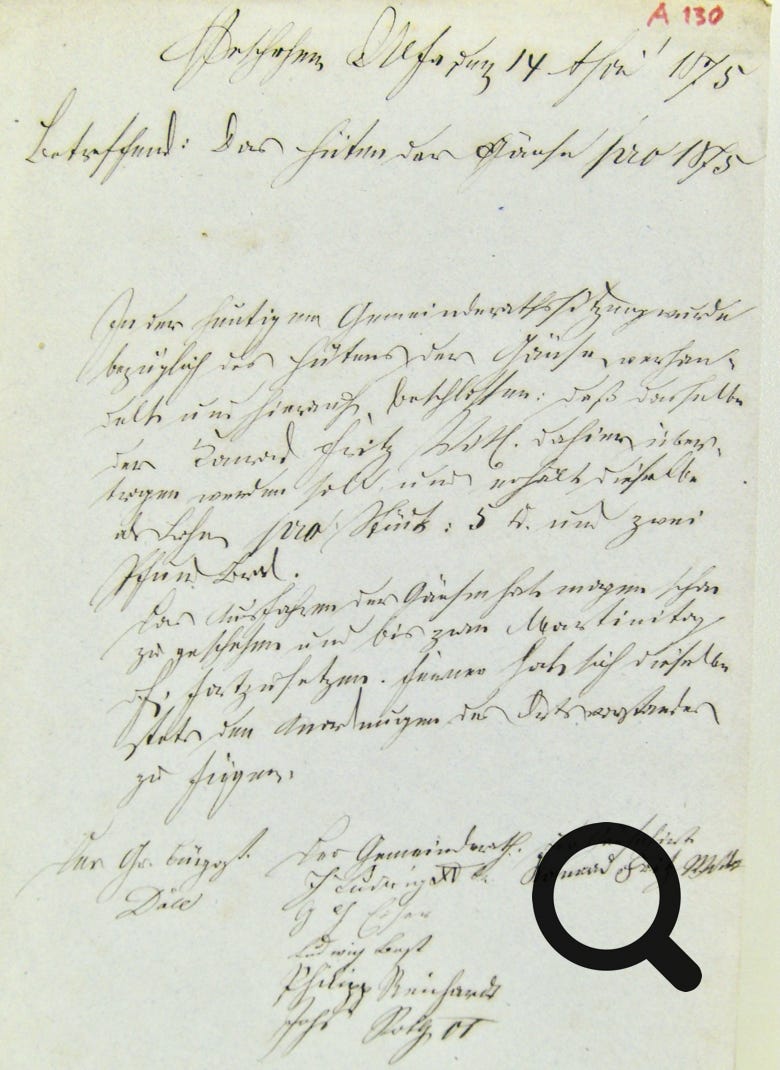 A 130
Geschehen Ulfa den 14 Mai 1875
Betreffend: Das Hüten der Gänse pro 1875
In der heutigen Gemeinderathssitzung wurde
bezüglich des Hütens der Gänse verhan-
delt und hierauf beschlossen: daß dasselbe
der Conrad Fritz Wtb. dahier über-
tragen werden soll und erhält dieselbe
als Lohn pro Stück: 5 d. und zwei
Pfund Brod.
Das Ausfahren der Gänse hat morgen schon
zu geschehen und bis zum Martinitag
fortzusetzen. Ferner hat sich dieselbe
stets den Anordnungen des Ortsvorstandes
zu fügen.
Der Gr. Bürgst. Der Gemeinderath.
Döll Ludwig
Konrad Fritz
Ludwig Bost
Philipp Reinhardt
Johs